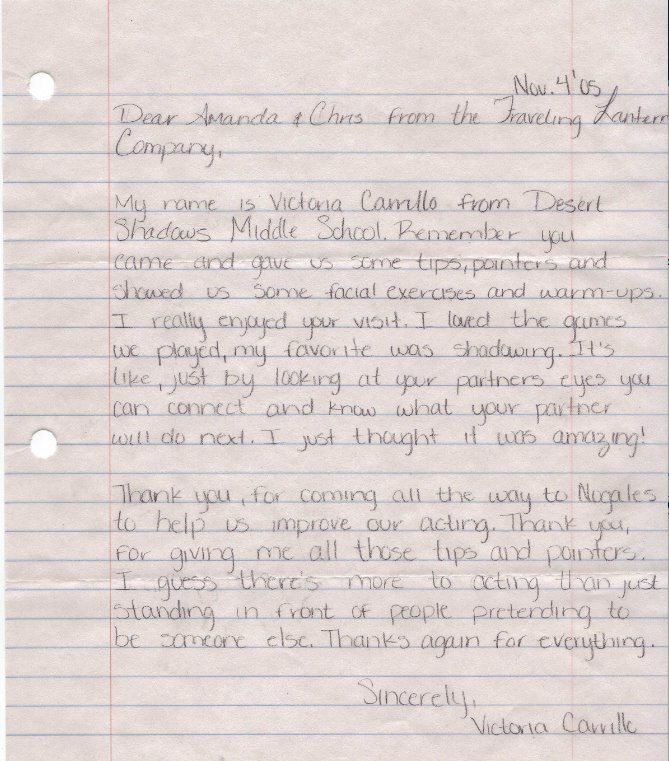 Nov. 4 '05
Dear Amanda & Chris from the Traveling Lantern
Company,
My name is Victoria Carrillo from Desert
Shadows Middle School. Remember you
came and gave us some tips, pointers and
showed us some facial exercises and warm-ups.
I really enjoyed your visit. I loved the games
we played, my favorite was shadowing. It's
like, just by looking at your partners eyes you
can connect and know what your partner
will do next. I just thought it was amazing!
Thank you, for coming all the way to Nogales
to help us improve our acting. Thank you,
for giving me all those tips and pointers.
I guess there's more to acting than just
standing in front of people pretending to
be someone else. Thanks again for everything.
Sincerely,
Victoria Carrillo